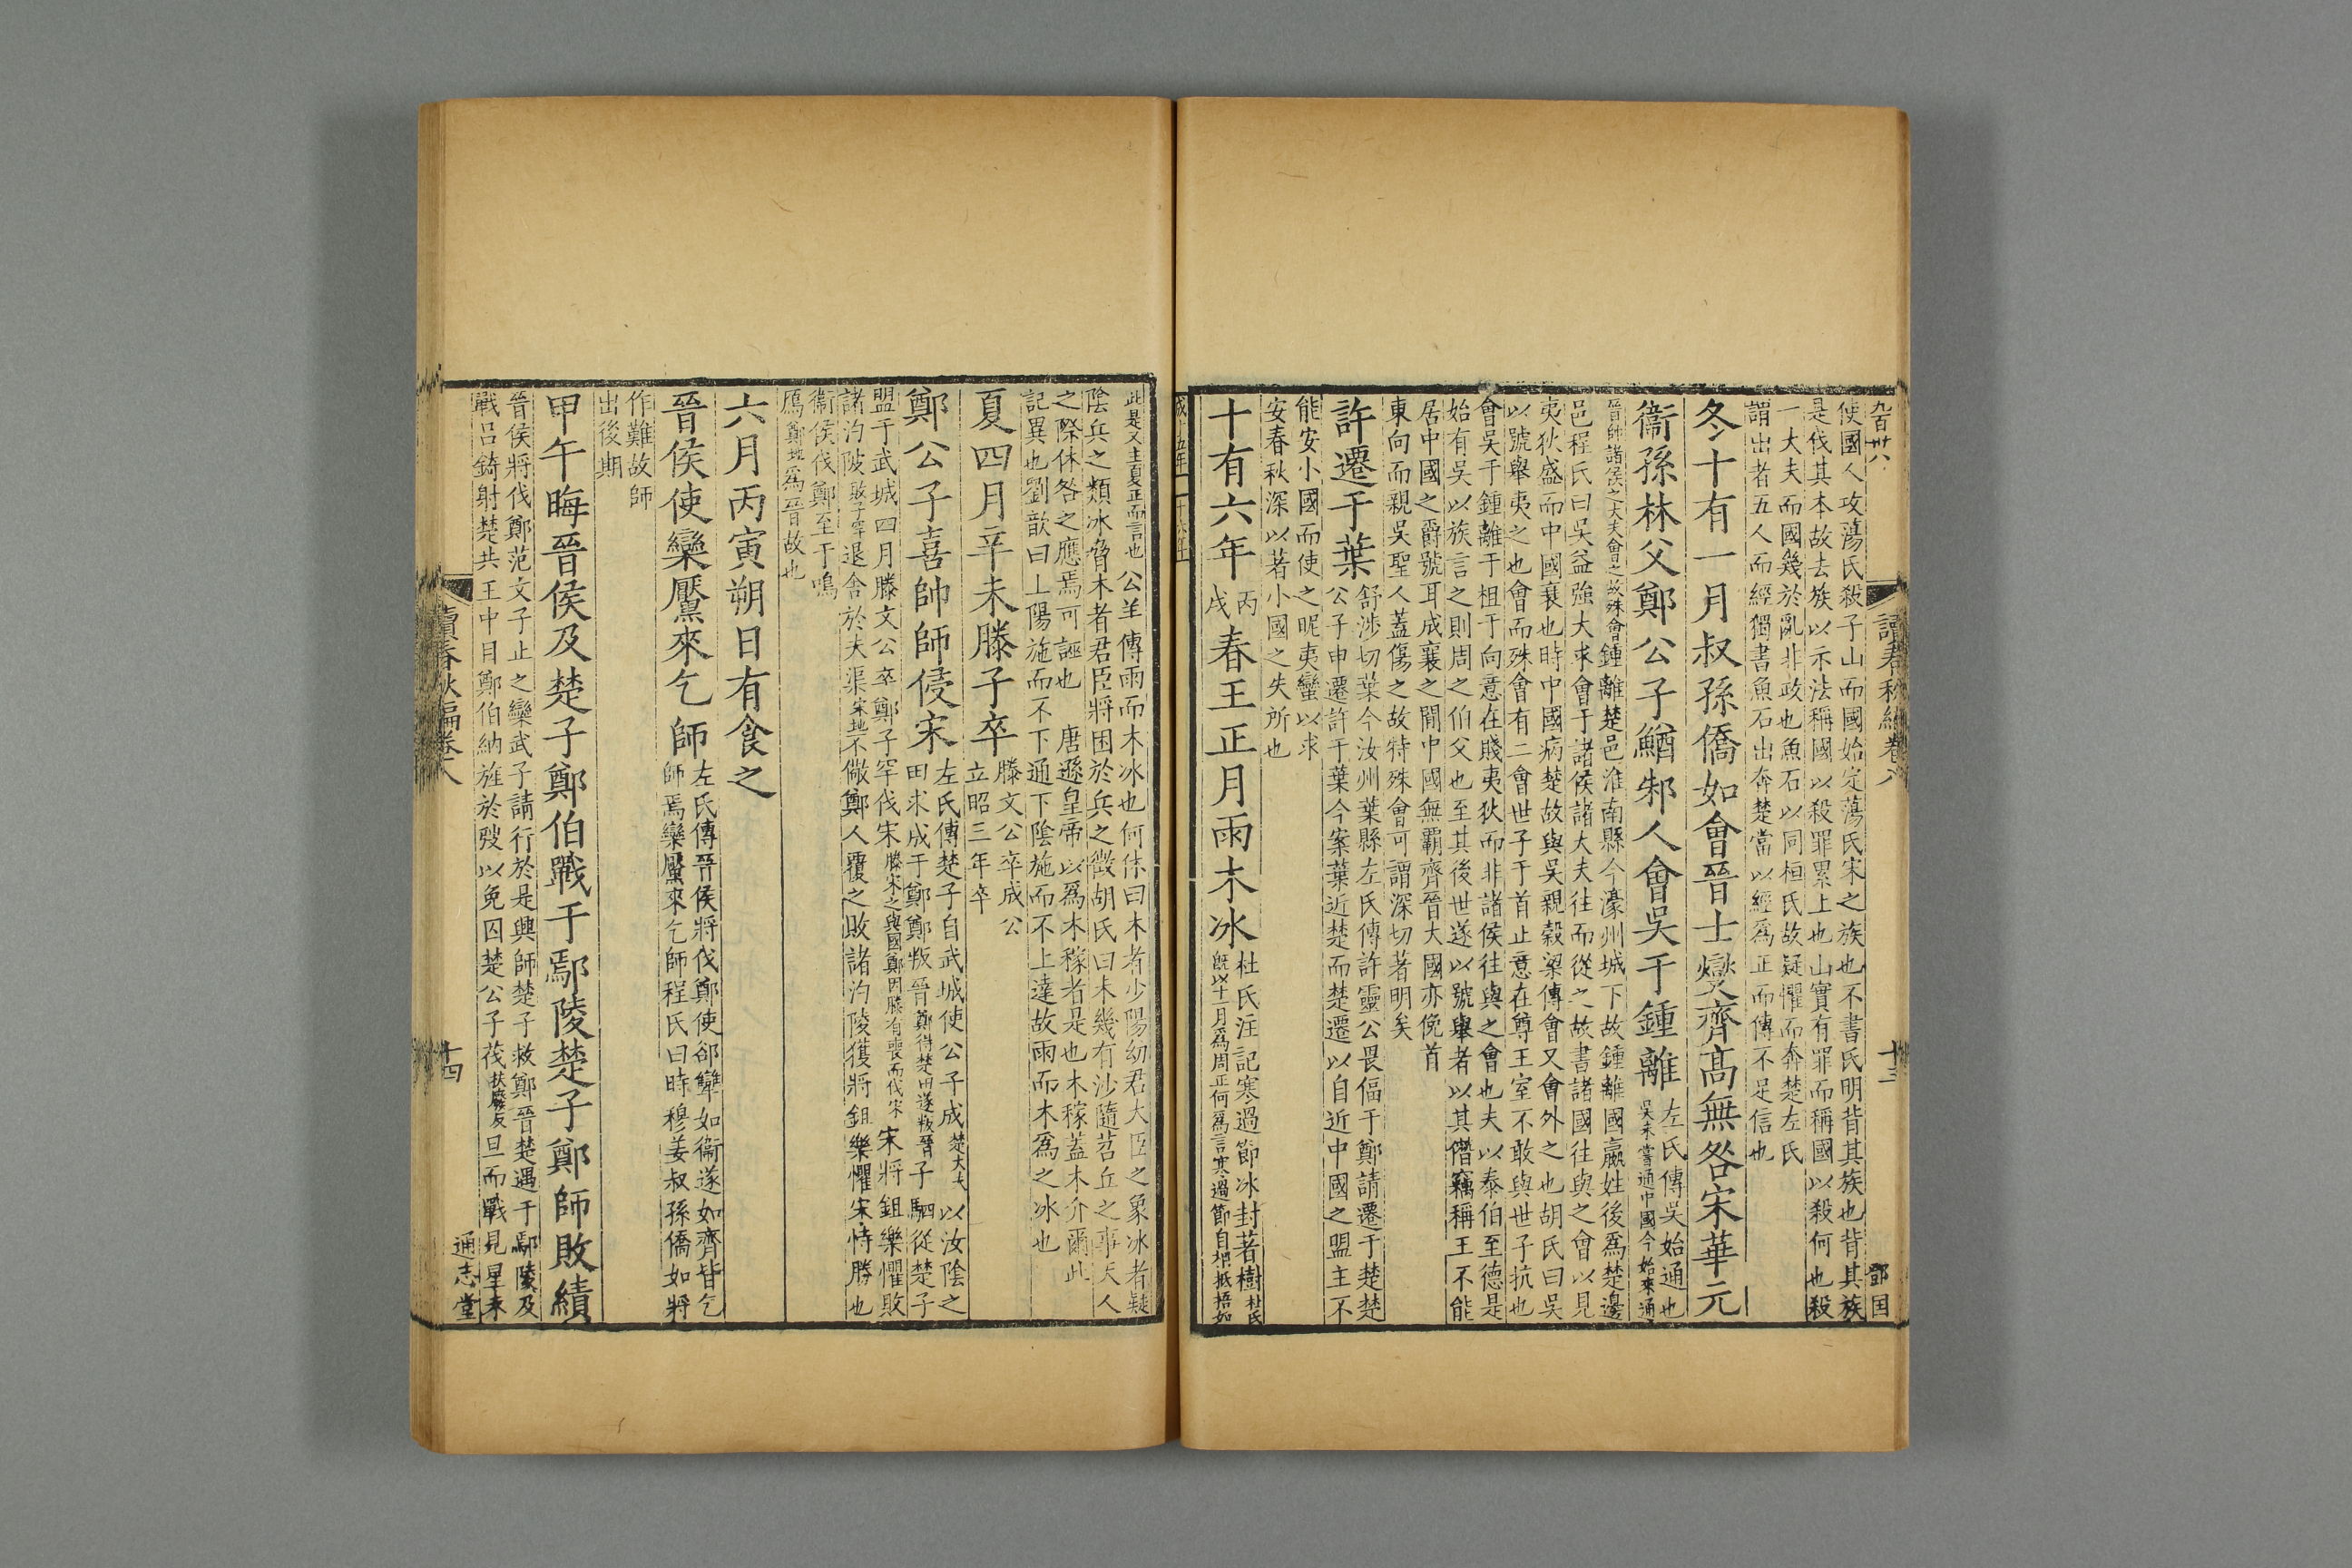 使國人攻蕩氏殺子山而國始定蕩氏宋之族也不書氏明背其族也背其族
是伐其本故去族以示法稱國以殺罪累上也山實有罪而稱國以殺何也殺
一大夫而國幾於亂非政也魚石以同桓氏故疑懼而奔楚左氏
謂出者五人而經獨書魚石出奔楚當以經爲正而傳不足信也
冬十有一月叔孫僑如會晉士燮齊高無咎宋華元
衞孫林父鄭公子鰌邾人會吳于鍾離
左氏傳吳始通也
吳未嘗通中國今始來通
晉帥諸侯之大夫會之故殊會鍾離楚邑淮南縣今濠州城下故鍾離國嬴姓後爲楚邊
邑程氏曰吳益強大求會于諸侯諸大夫往而從之故書諸國往與之會以見
夷狄盛而中國衰也時中國病楚故與吳親穀梁傳會又會外之也胡氏曰吳
以號舉夷之也會而殊會有二會世子于首止意在尊王室不敢與世子抗也
會吳于鍾離于柤于向意在賤夷狄而非諸侯往與之會也夫以泰伯至德是
始有吳以族言之則周之伯父也至其後世遂以號舉者以其僭竊稱王不能
居中國之爵號耳成襄之閒中國無霸齊晉大國亦俛首
東向而親吳聖人蓋傷之故特殊會可謂深切著明矣
許遷于葉
舒涉切葉今汝州葉縣左氏傳許靈公畏偪于鄭請遷于楚楚
公子申遷許于葉今案葉近楚而楚遷以自近中國之盟主不
能安小國而使之昵夷蠻以求
安春秋深以著小國之失所也
十有六年
丙
戌
春王正月雨木冰
杜氏注記寒過節冰封著樹杜氏
旣以十一月爲周正何爲言寒過節自相抵捂如
讀春秋編卷八
十三
此是又主夏正而言也公羊傳雨而木冰也何休曰木者少陽幼君大臣之象冰者疑
陰兵之類冰脅木者君臣將困於兵之徵胡氏曰未幾有沙隨苕丘之事天人
之際休咎之應焉可誣也 唐遜皇帝以爲木稼者是也木稼蓋木介爾此
記異也劉歆曰上陽施而不下通下陰施而不上達故雨而木爲之冰也
夏四月辛未滕子卒
滕文公卒成公
立昭三年卒
鄭公子喜帥師侵宋
左氏傳楚子自武城使公子成楚大夫以汝陰之
田求成于鄭鄭叛晉鄭得楚田遂叛晉子駟從楚子
盟于武城四月滕文公卒鄭子罕伐宋滕宋之與國鄭因滕有喪而伐宋宋將鉏樂懼敗
諸汋陂敗子罕退舍於夫渠宋地不儆鄭人覆之敗諸汋陵獲將鉏樂懼宋恃勝也
衞侯伐鄭至于鳴
鴈鄭地爲晉故也
六月丙寅朔日有食之
晉侯使欒黶來乞師
左氏傳晉侯將伐鄭使郤犨如衞遂如齊皆乞
師焉欒黶來乞師程氏曰時穆姜叔孫僑如將
作難故師
出後期
甲午晦晉侯及楚子鄭伯戰于鄢陵楚子鄭師敗績
晉侯將伐鄭范文子止之欒武子請行於是興師楚子救鄭晉楚遇于鄢陵及
戰呂錡射楚共王中目鄭伯納旌於弢以免囚楚公子茷扶廢反旦而戰見星未
讀春秋編卷八
十四
通志堂